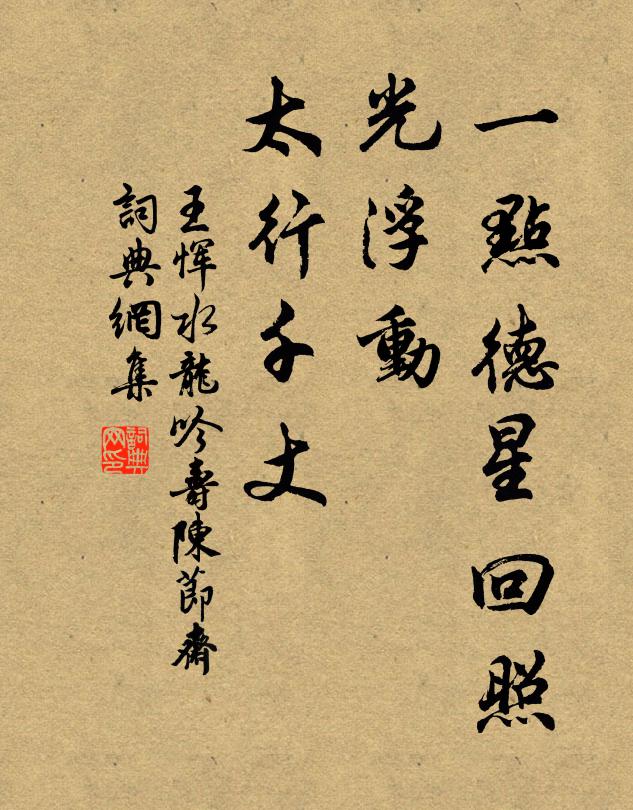 一點德星回照
光浮動
太行千丈
王惲水龍吟壽陳節齋
詞典網集
詞典
网印